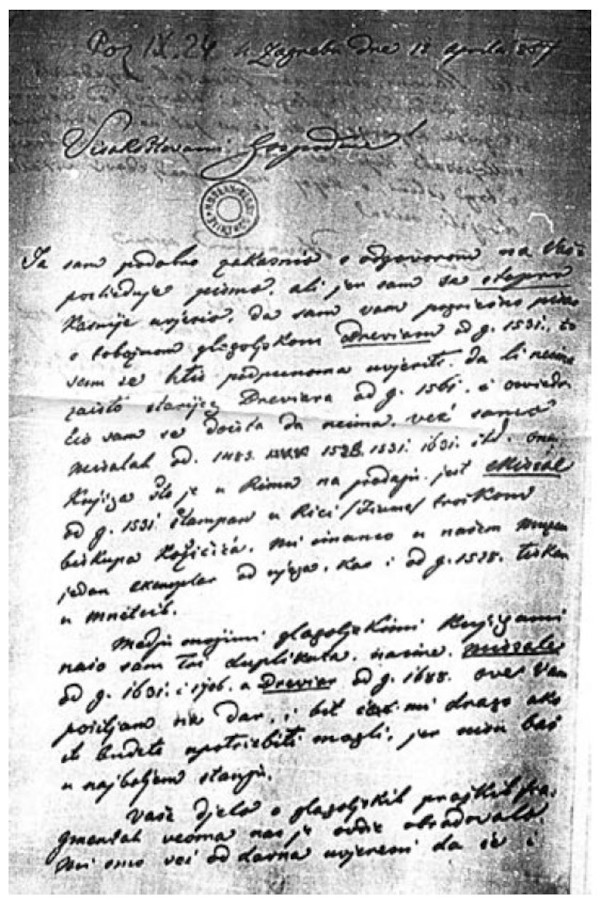 Poz IX. 24 u Zagrebu dne 18 aprila 857
Visokoštovani Gospodine!
Ja sam podalno zakasnio s odgovorom na Vaše
posliednje pismo, ali jer sam se stoprv
kasnije uvjerio, da sam vam pogriešno pisao
o tobožnom glagoljskom Breviaru od g. 1531., to
sam se htio podpunoma uvjeriti, da li neima
zaisto starijeg Breviara od g. 1561. i osviedo
čio sam se doista da neima, već samo
Missalah od. 1483. 1528. 1531. 1631. itd. ona
knjiga što je u Rimu na prodaju jest Missal
od g. 1531 štampan u Rici /Fiume/ troškom
biskupa Kožičića. Mi imamo u našem Muzeu
jedan exemplar od njega, kao i od g. 1528. tiskan
u Mnetcih.
Medju mojimi glagoljskimi knjigami
našo sam tri duplikata, naime, Missale
od g. 1631. i 1706. a Breviar od g. 1688. ove Vam
posiljam na dar, i bit će mi drago ako
ih budete upotriebiti mogli, jer nisu baš
u najboljem stanju.
Vaše djelo o glagoljskih prajskih fra-
gmentah veoma nas je ovdie obradovalo
Mi smo već od davna uvjereni da je i